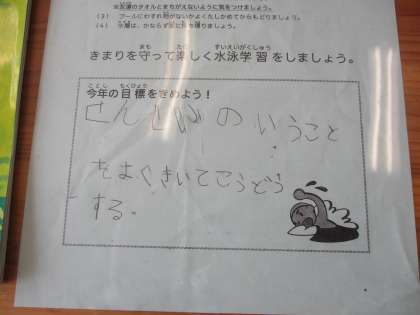 友達のタオルとまちがえないように気をつけましょう。
(3) プールにわすれ物がないかよくたしかめてからもどりましょう。
(4) は、かならず持ち帰りましょう。
まも たの すいえいがくしゅう
きまりを守って楽しく水泳学習をしましょう。
ことし もくひょう
今年の目標をきめよう！
せんせいのいうこと
をよくきいてこうどう
する。